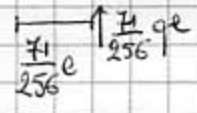 71/256 qe
71/256 e